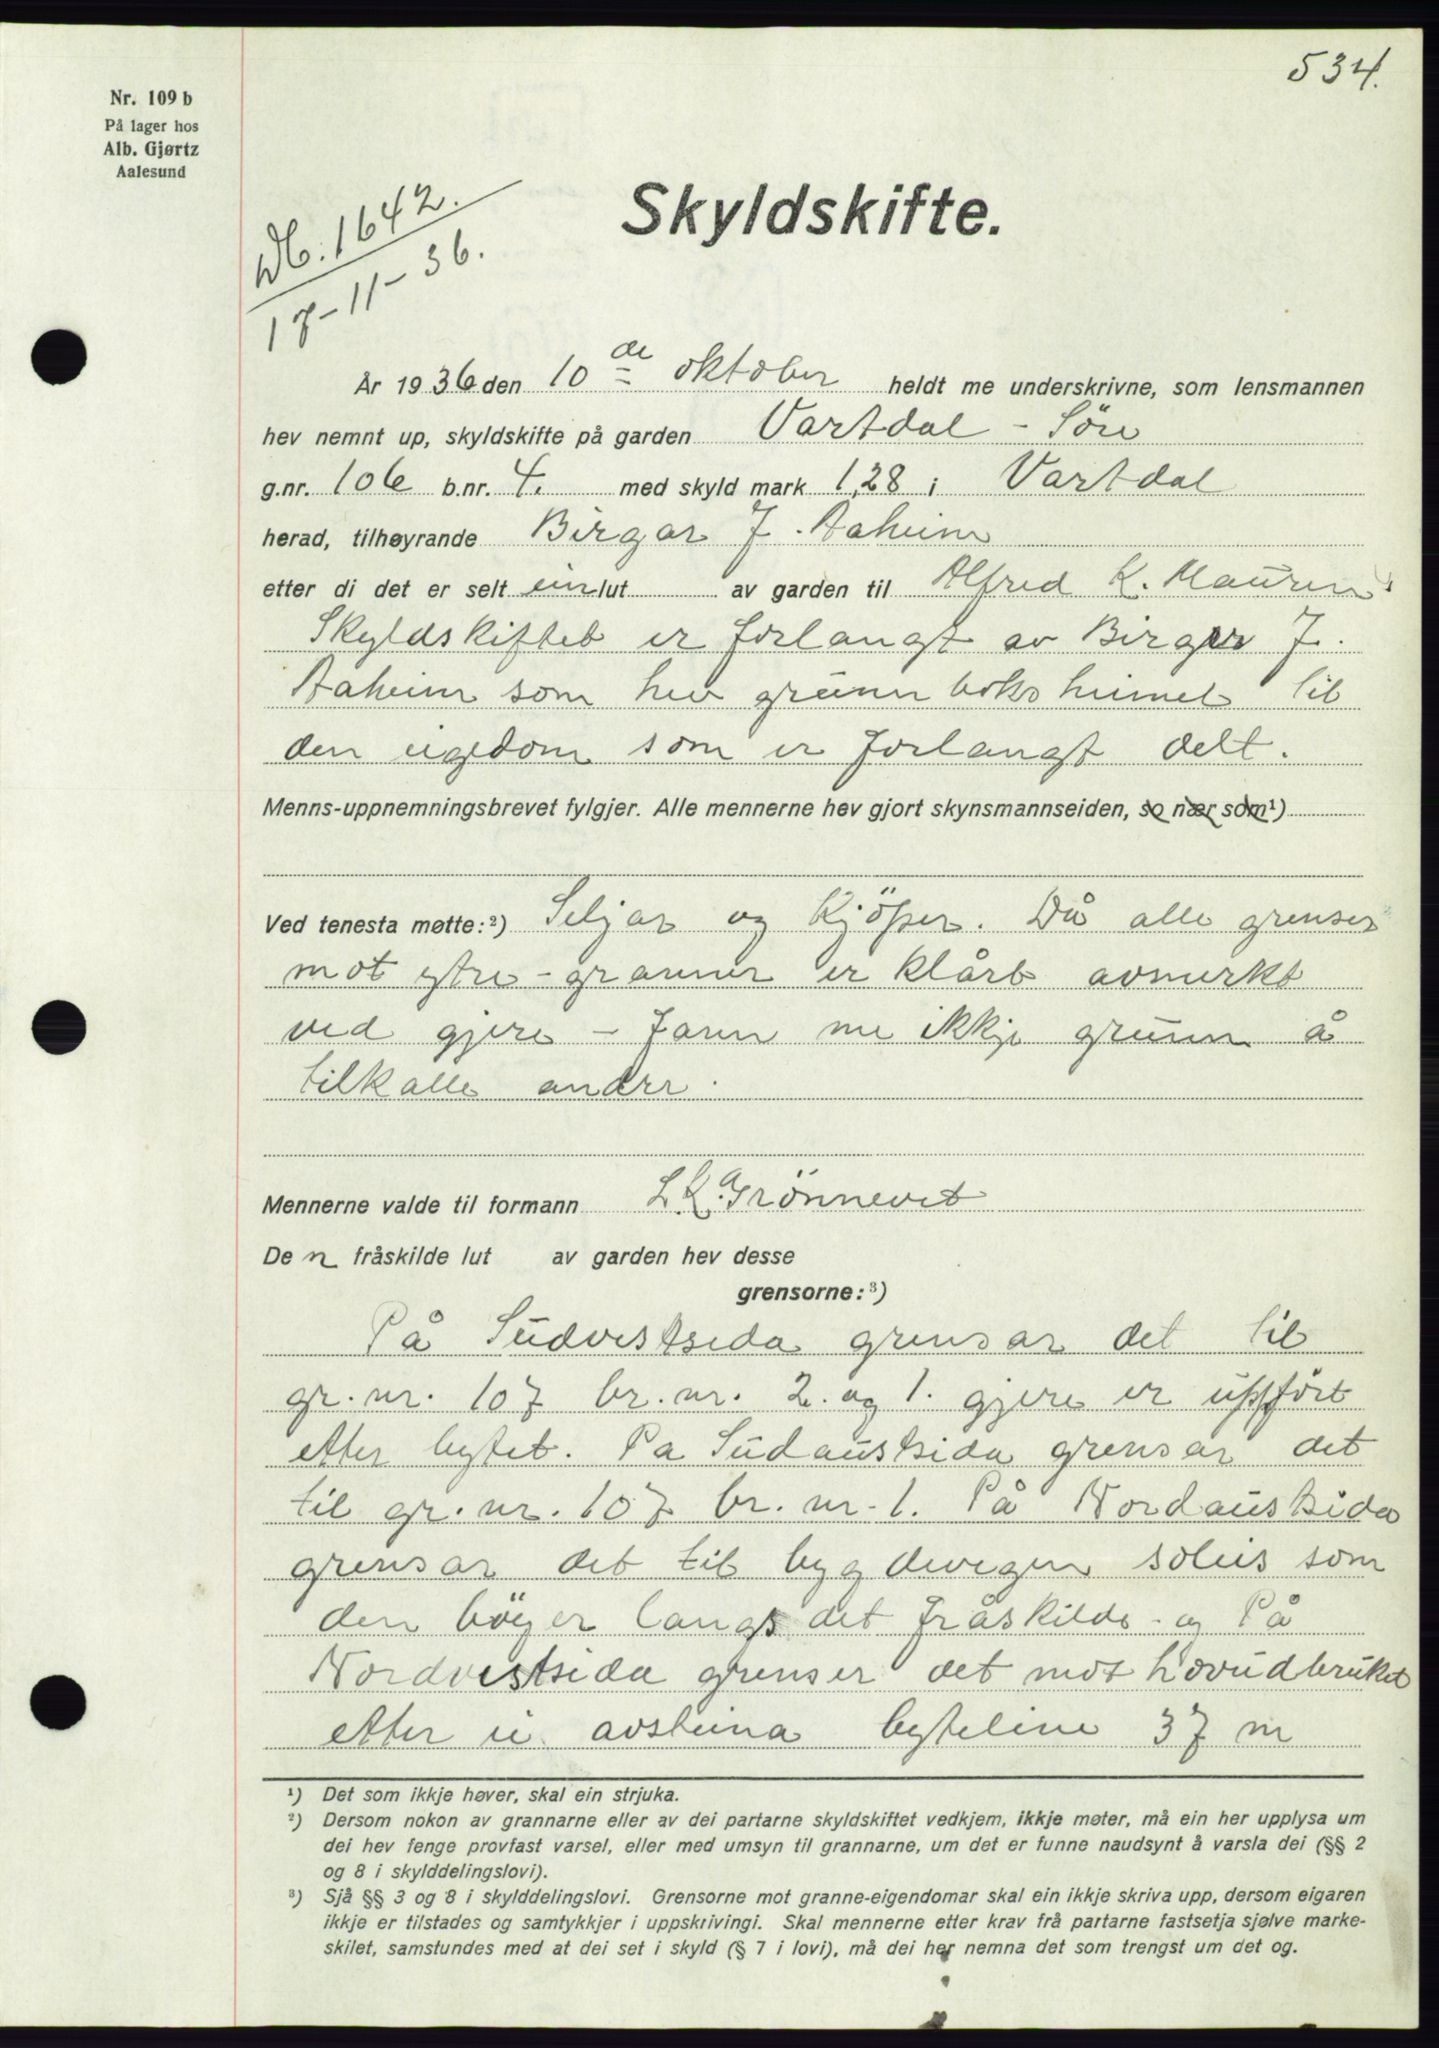 534.
Nr. 109 b
På lager hos
Alb. Gjørtz
Aalesund
Db. 1642.
17-11-36.
Skyldskifte.
År 1936 den 10de oktober heldt me underskrivne, som lensmannen
hev nemnt up, skyldskifte på garden Vartdal - Söre
g.nr. 106 b.nr. 4. med skyld mark 1,28 i Vartdal
herad, tilhøyrande Birgar J. Aaheim
etter di det er selt ein lut av garden til Alfred K. Mauren
Skyldskiftet er forlangt av Birger J.
Aaheim som hev grunnbokshimel til
den eigedom som er forlangt delt.
Menns-uppnemningsbrevet fylgjer. Alle mennerne hev gjort skynsmannseiden, so nær som¹)
Ved tenesta møtte:²) Seljar og Kjöper. Då alle grenser
mot ytre-granner er klårt avmerkt
ved gjere - fann me ikkje grunn å
tilkalle andre.
Mennerne valde til formann L. K. Grönnevet
De n fråskilde lut av garden hev desse
grensorne:³)
På Sudvestsida grensar det til
gr. nr. 107 br. nr. 2. og 1. gjere er uppfört
etter bytet. Pa Sudaustsida grensar det
til gr. nr. 107 br. nr. 1. På Nordaustsida
grensar det til bygdevegen soleis som
den böyer langs det fråskilde - og På
Nordvestsida grenser det mot hovudbruket
etter ei avsteina byteline 37 m
¹) Det som ikkje høver, skal ein strjuka.
²) Dersom nokon av grannarne eller av dei partarne skyldskiftet vedkjem, ikkje møter, må ein her upplysa um
dei hev fenge provfast varsel, eller med umsyn til grannarne, um det er funne naudsynt å varsla dei (§§ 2
og 8 i skylddelingslovi).
³) Sjå §§ 3 og 8 i skylddelingslovi. Grensorne mot granne-eigendomar skal ein ikkje skriva upp, dersom eigaren
ikkje er tilstades og samtykkjer i uppskrivingi. Skal mennerne etter krav frå partarne fastsetja sjølve marke-
skilet, samstundes med at dei set i skyld (§ 7 i lovi), må dei her nemna det som trengst um det og.